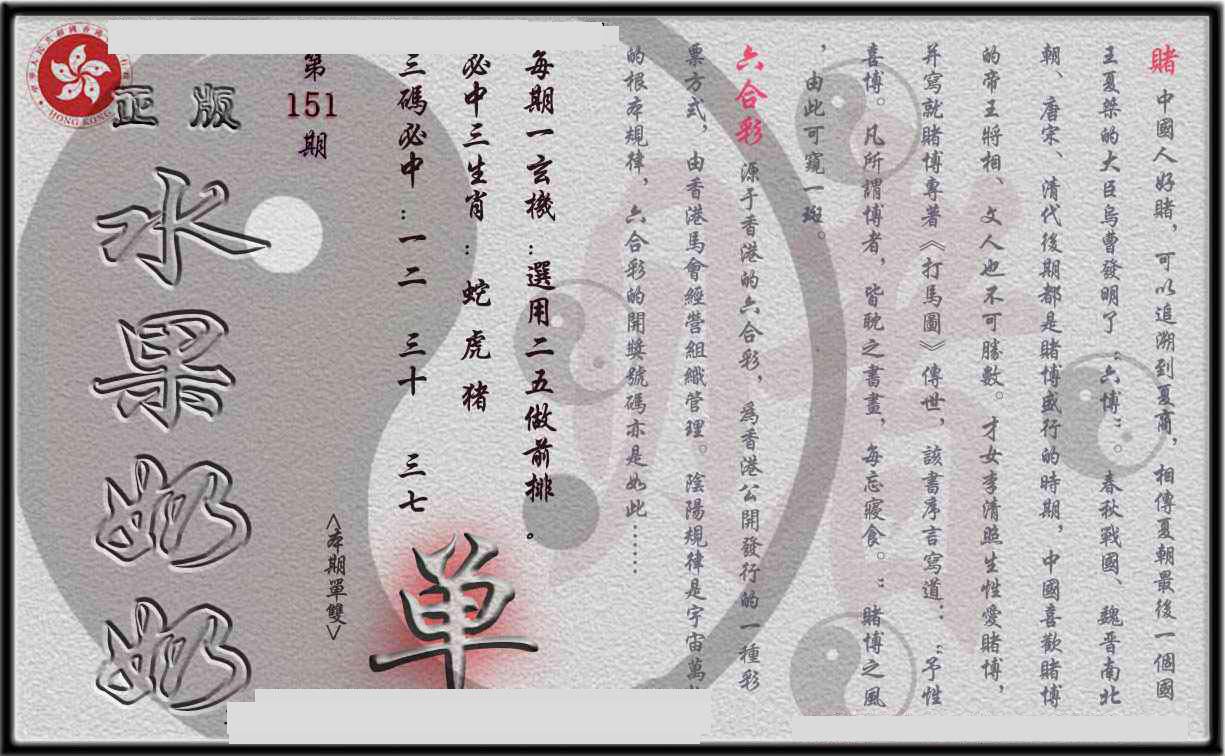 賭 中國人好賭，可以追溯到夏商，相傳夏朝最後一個國
王夏桀的大臣烏曹發明了“六博”。春秋戰國、魏晋南北
朝、唐宋、清代後期都是賭博盛行的時期，中國喜歡賭博
的帝王將相、文人也不可勝數。才女李清照生性愛賭博，
并寫就賭博專著《打馬圖》傳世，該書序言寫道：“予性
喜博。凡所謂博者，皆耽之書畫，每忘寢食。”賭博之風
，由此可窺一斑。
六合彩 源于香港的六合彩，爲香港公開發行的一種彩
票方式，由香港馬會經營組織管理。陰陽規律是宇宙萬
的根本規律，六合彩的開獎號碼亦是如此……
每期一玄機：選用二五做前排。
必中三生肖：蛇 虎 猪
三碼必中：一二 三十 三七
單
<本期單雙>
第
151
期
正版
水果奶奶
HONG KONG